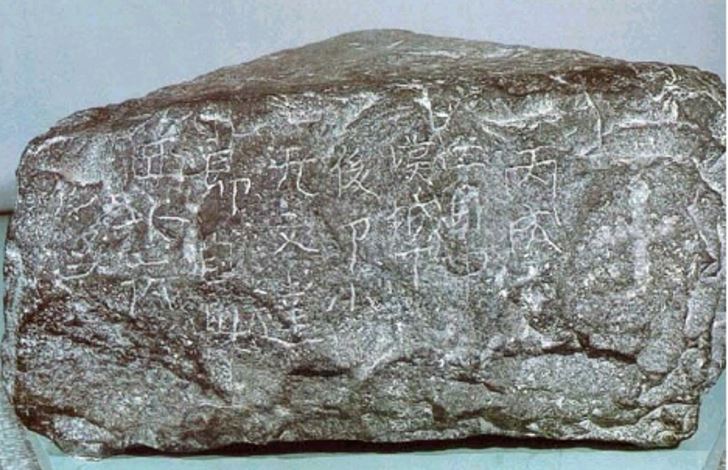 丙戌十
二月中
漢城下
後卩小
兄文達
節自此
西北行
涉之